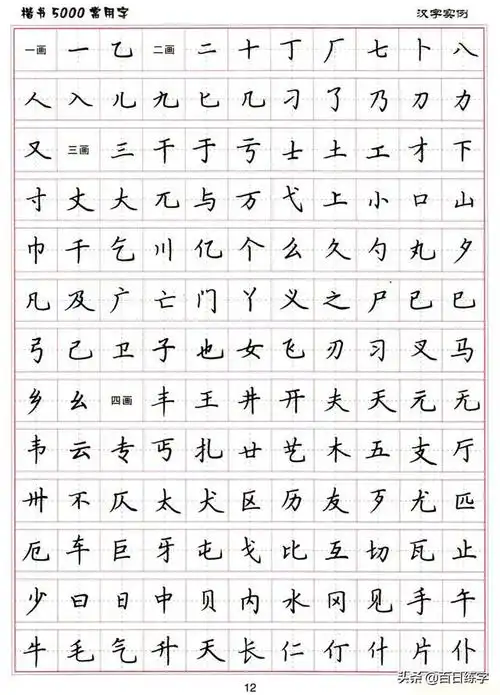 楷书5000常用字 汉字实例
一画 一 乙 二画 二 十 丁 厂 七 卜 八
人 入 儿 九 匕 几 刁 了 乃 刀 力
又 三画 三 干 于 亏 士 土 工 才 下
寸 丈 大 兀 与 万 弋 上 小 口 山
巾 千 乞 川 亿 个 么 久 勺 丸 夕
凡 及 广 亡 门 丫 义 之 尸 已 巳
弓 己 卫 子 也 女 飞 刃 习 叉 马
乡 幺 四画 丰 王 井 开 夫 天 元 无
韦 云 专 丐 扎 廿 艺 木 五 支 厅
卅 不 仄 太 犬 区 历 友 歹 尤 匹
厄 车 巨 牙 屯 戈 比 互 切 瓦 止
少 曰 日 中 贝 内 水 冈 见 手 午
牛 毛 气 升 夭 长 仁 仃 什 片 仆
12
头条@百日练字